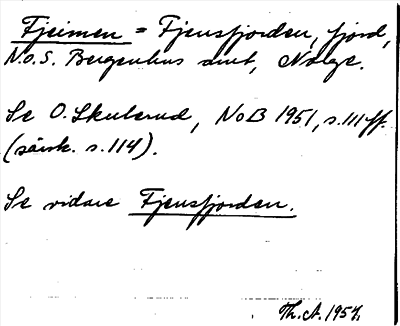 Fjeimen = Fjensfjorden, fjord,
N.o.S. Bergenhus amt, Norge.
Se O. Skulerud, NoB 1951, s. 111 ff.
(särsk. s. 114).
Se vidare Fjensfjorden.
Th. A. 1957.